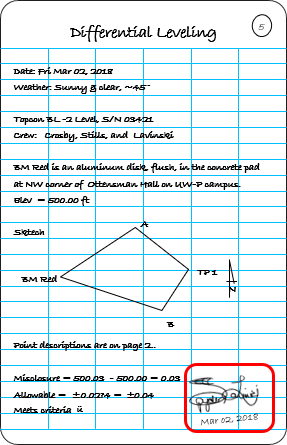 Differential Leveling
5
Date: Fri Mar 02, 2018
Weather: Sunny & clear, ~45°
Topcon BL-2 Level, S/N 03421
Crew: Crosby, Stills, and Lavinski
BM Red is an aluminum disk, flush, in the concrete pad
at NW corner of Ottensman Hall on UW-P campus.
Elev = 500.00 ft
Sketech
A
BM Red
TP1
N
B
Point descriptions are on page 2..
Misclosure = 500.03 - 500.00 = 0.03
Allowable = ±0.0274 = ±0.04
Meets criteria ü
Mar 02, 2018